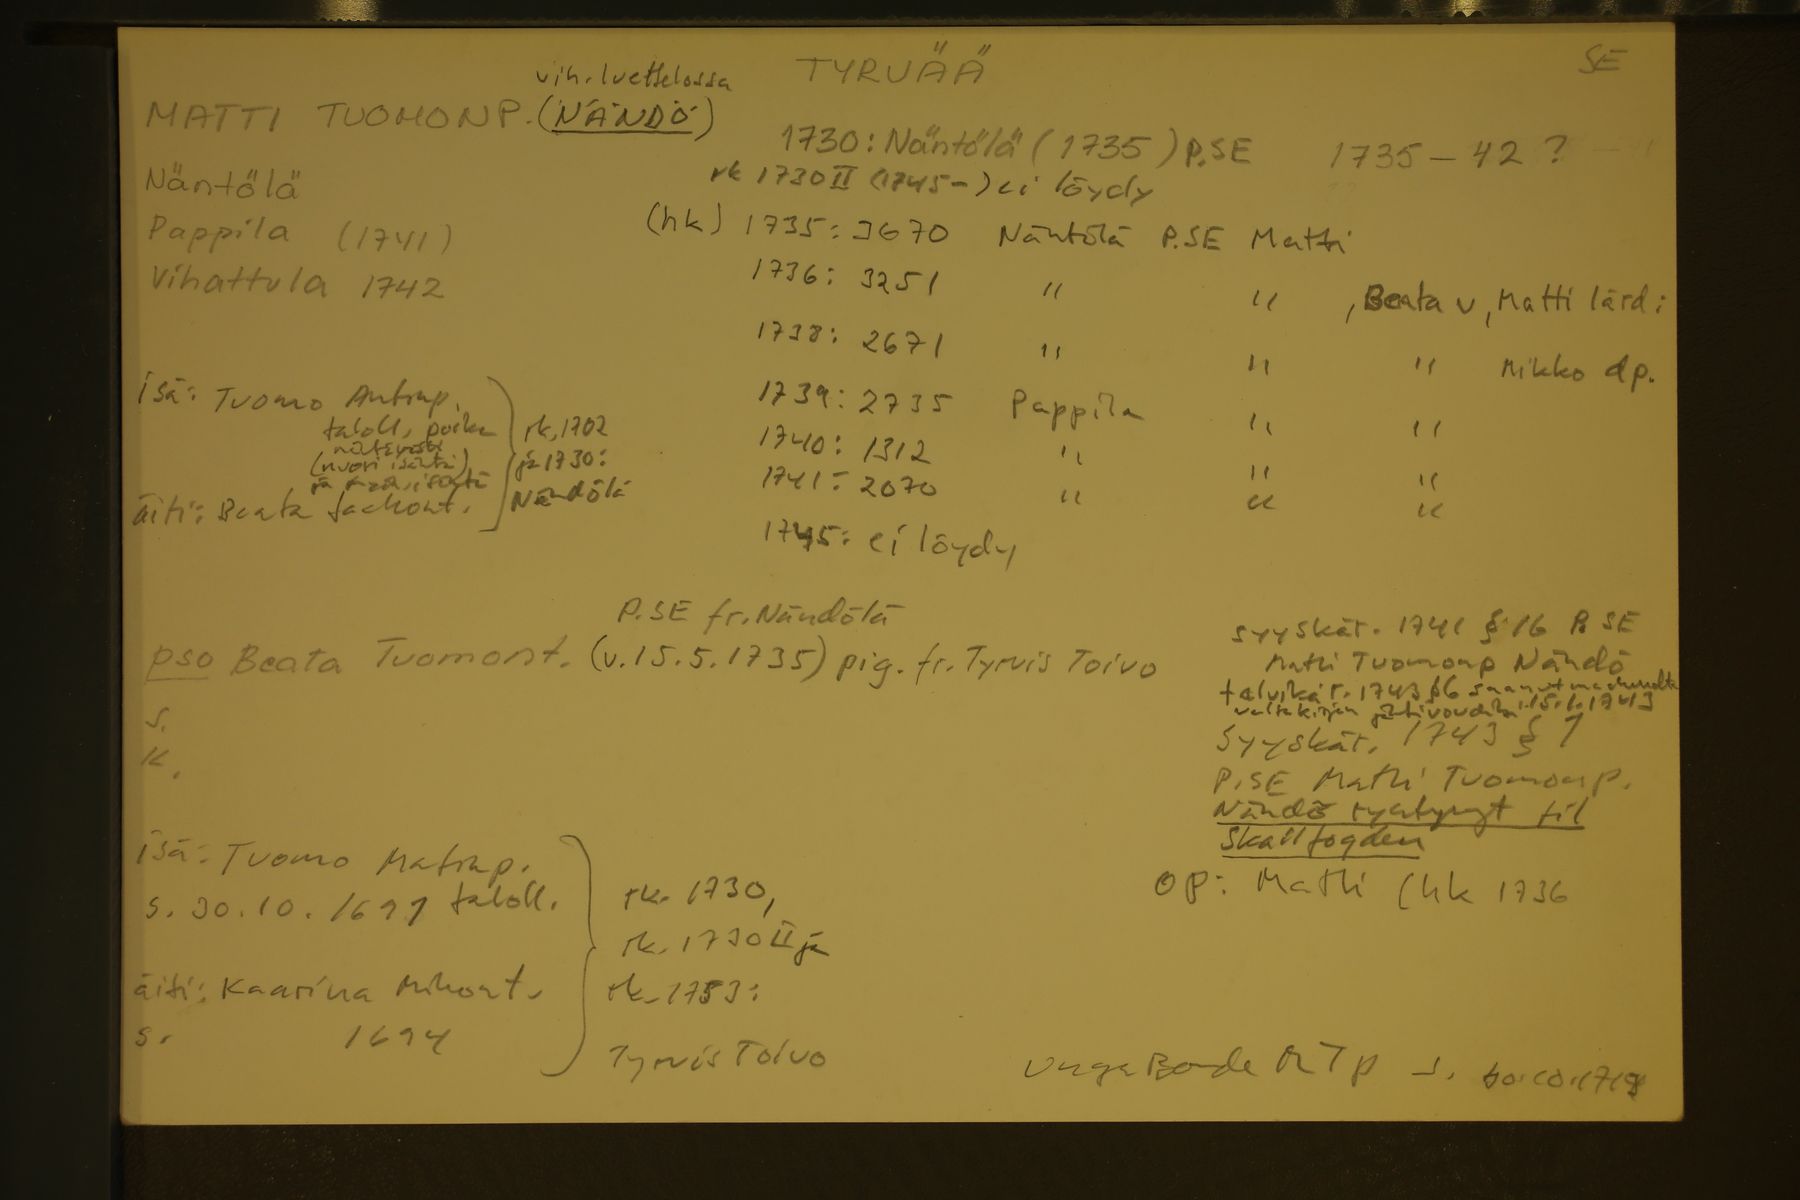 TYRVÄÄ
SE
vih.luettelossa
MATTI TUOMONP. (NÄNDÖ)
1730: Näntölä (1735) P.SE 1735 – 42 ?
rk 1730 II (1745–) ei löydy
Näntölä
Pappila (1741)
Vihattula 1742
(hk) 1735: 3670 Näntölä P.SE Matti
1736: 3251 " " , Beata v, Matti lärd:
1738: 2671 " " " Mikko dp.
1739: 2735 Pappila " "
1740: 1312 " " "
1741: 2070 " " "
1745: ei löydy
isä: Tuomo Antinp.
taloll. poika
(nuori isäntä)
äiti: Beata Jaakont.
rk. 1702
ja 1730:
Nändölä
P.SE fr. Nändölä
pso Beata Tuomont. (v. 15.5.1735) pig. fr. Tyrvis Toivo
s.
k.
syyskär. 1741 § 16 P. SE
Matti Tuomonp Nändö
talvikär. 1743 §6 saanut
valtakirjan 15.1.1743
Syyskär. 1743 § 7
P.SE Matti Tuomonp.
Nändö til
Skallfogden
OP: Matti (hk 1736
isä: Tuomo Matinp.
s. 30.10.1691 taloll.
äiti: Kaarina Mikont.
s. 1694
rk. 1730,
rk. 1730 II ja
rk. 1753:
Tyrvis Toivo
Unga Bonde MTp s.